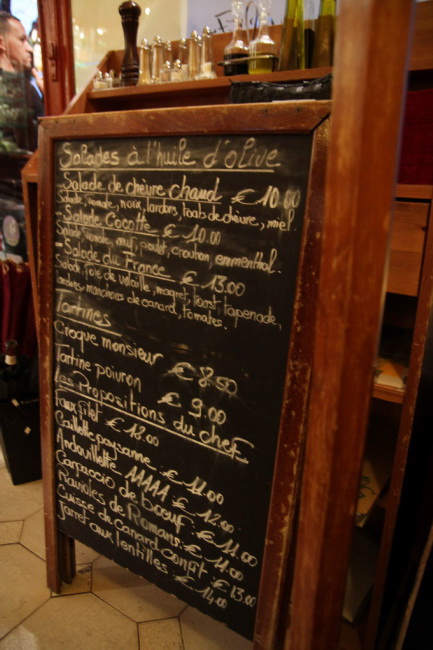 Salades à l'huile d'olive
- Salade de chèvre chaud € 10.00
Salade, tomate, noix, lardons, toasts de chèvre, miel.
- Salade Cocotte € 10.00
Salade, tomate, œuf, poulet, crouton, emmenthal.
- Salade du France € 13.00
Salade, foie de volaille, magret, toast, tapenade,
lardons, manchons de canard, tomates.
Tartines
Croque monsieur € 8.50
Tartine poivron € 9.00
Les Propositions du chef
Faux filet € 18.00
Caillette paysanne € 11.00
Andouillette AAAAA € 12.00
Carpaccio de bœuf € 11.00
Ravioles de Romans € 11.00
Cuisse de canard confit € 13.00
Jarret aux lentilles € 14.00